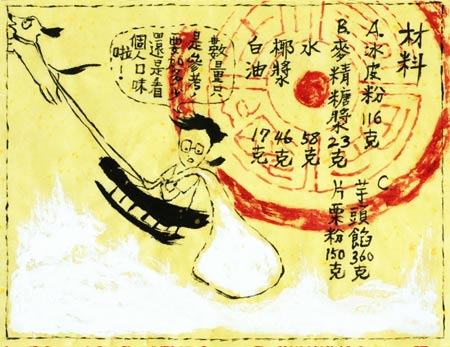 材料
A.冰皮粉 116克
B.麥精糖漿23克
水 58克
椰漿 46克
白油 17克
C
芋頭餡360克
片栗粉150克
數量只
是參考,
要加多少
還是看
個人口味
啦!